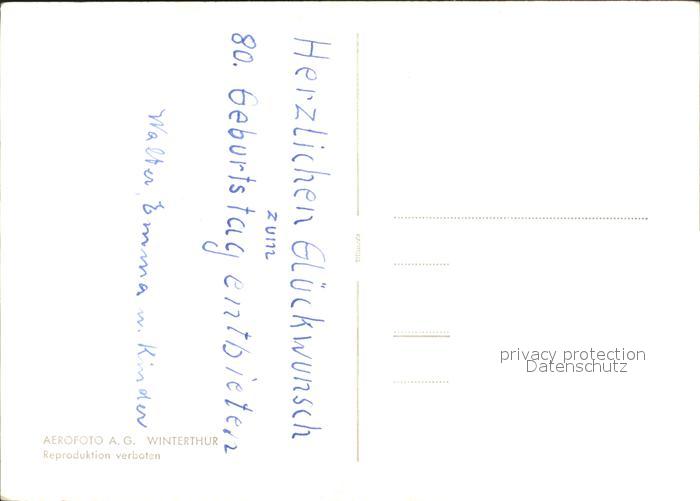 Herzlichen Glückwunsch
zum
80. Geburtstag entbieten
Walter, Emma u. Kinder
AEROFOTO A.G. WINTERTHUR
Reproduktion verboten
privacy protection
Datenschutz